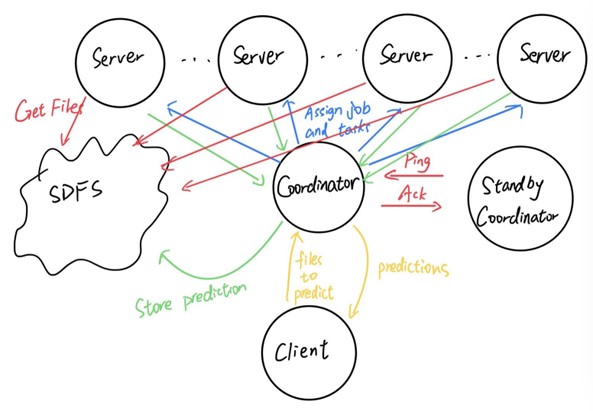 Server
Server
Server
Server
Get Files
Assign job
and tasks
SDFS
Coordinator
Ping
Ack
Standby
Coordinator
Store prediction
files
to
predict
predictions
Client